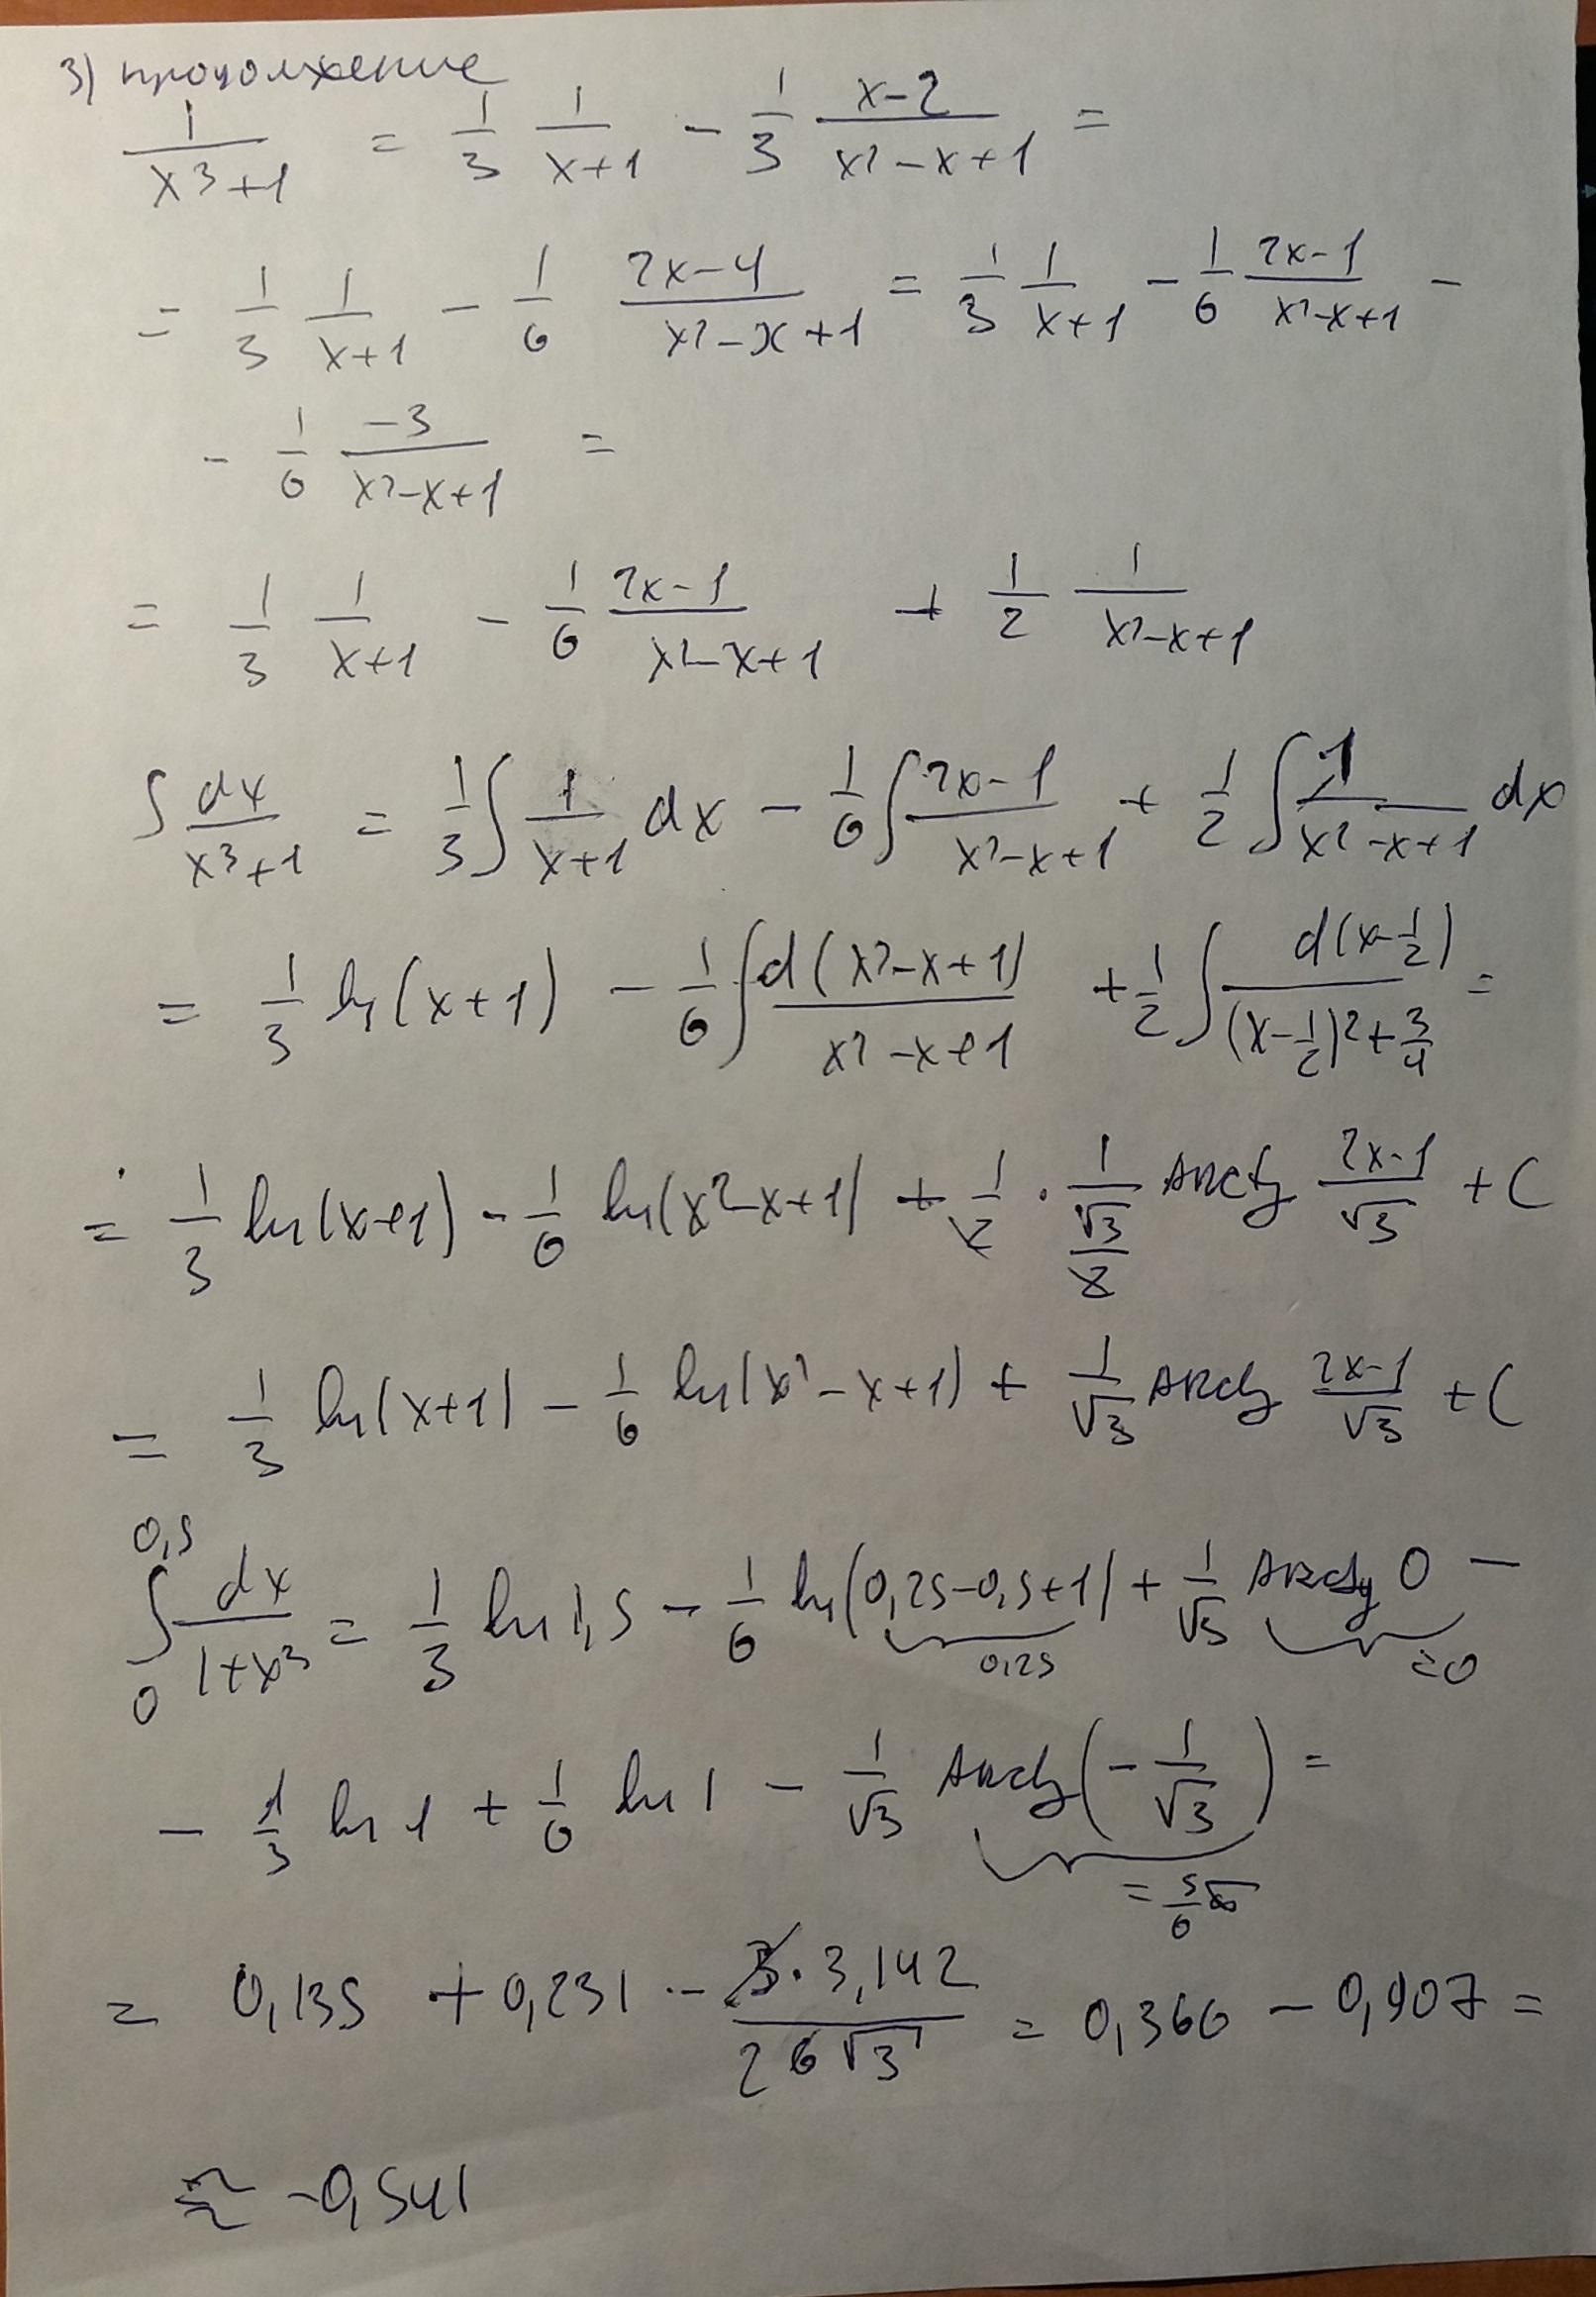 3) продолжение
1/(x³+1) = 1/3 1/(x+1) - 1/3 (x-2)/(x²-x+1) =
= 1/3 1/(x+1) - 1/6 (2x-4)/(x²-x+1) = 1/3 1/(x+1) - 1/6 (2x-1)/(x²-x+1) -
- 1/6 (-3)/(x²-x+1) =
= 1/3 1/(x+1) - 1/6 (2x-1)/(x²-x+1) + 1/2 1/(x²-x+1)
∫ dx/(x³+1) = 1/3 ∫ 1/(x+1) dx - 1/6 ∫ (2x-1)/(x²-x+1) + 1/2 ∫ 1/(x²-x+1) dx
= 1/3 ln(x+1) - 1/6 ∫ d(x²-x+1)/(x²-x+1) + 1/2 ∫ d(x-1/2)/((x-1/2)²+3/4) =
= 1/3 ln(x+1) - 1/6 ln(x²-x+1) + 1/2 · 1/(√3/2) arctg (2x-1)/√3 + C
= 1/3 ln(x+1) - 1/6 ln(x²-x+1) + 1/√3 arctg (2x-1)/√3 + C
∫₀^0,5 dx/(1+x³) = 1/3 ln 1,5 - 1/6 ln(0,25-0,5+1) + 1/√3 arctg 0 -
0,25 =0
- 1/3 ln 1 + 1/6 ln 1 - 1/√3 arctg(-1/√3) =
= 5/6 π
= 0,135 + 0,231 - 5·3,142/(2 6√3) = 0,366 - 0,907 =
≈ -0,541